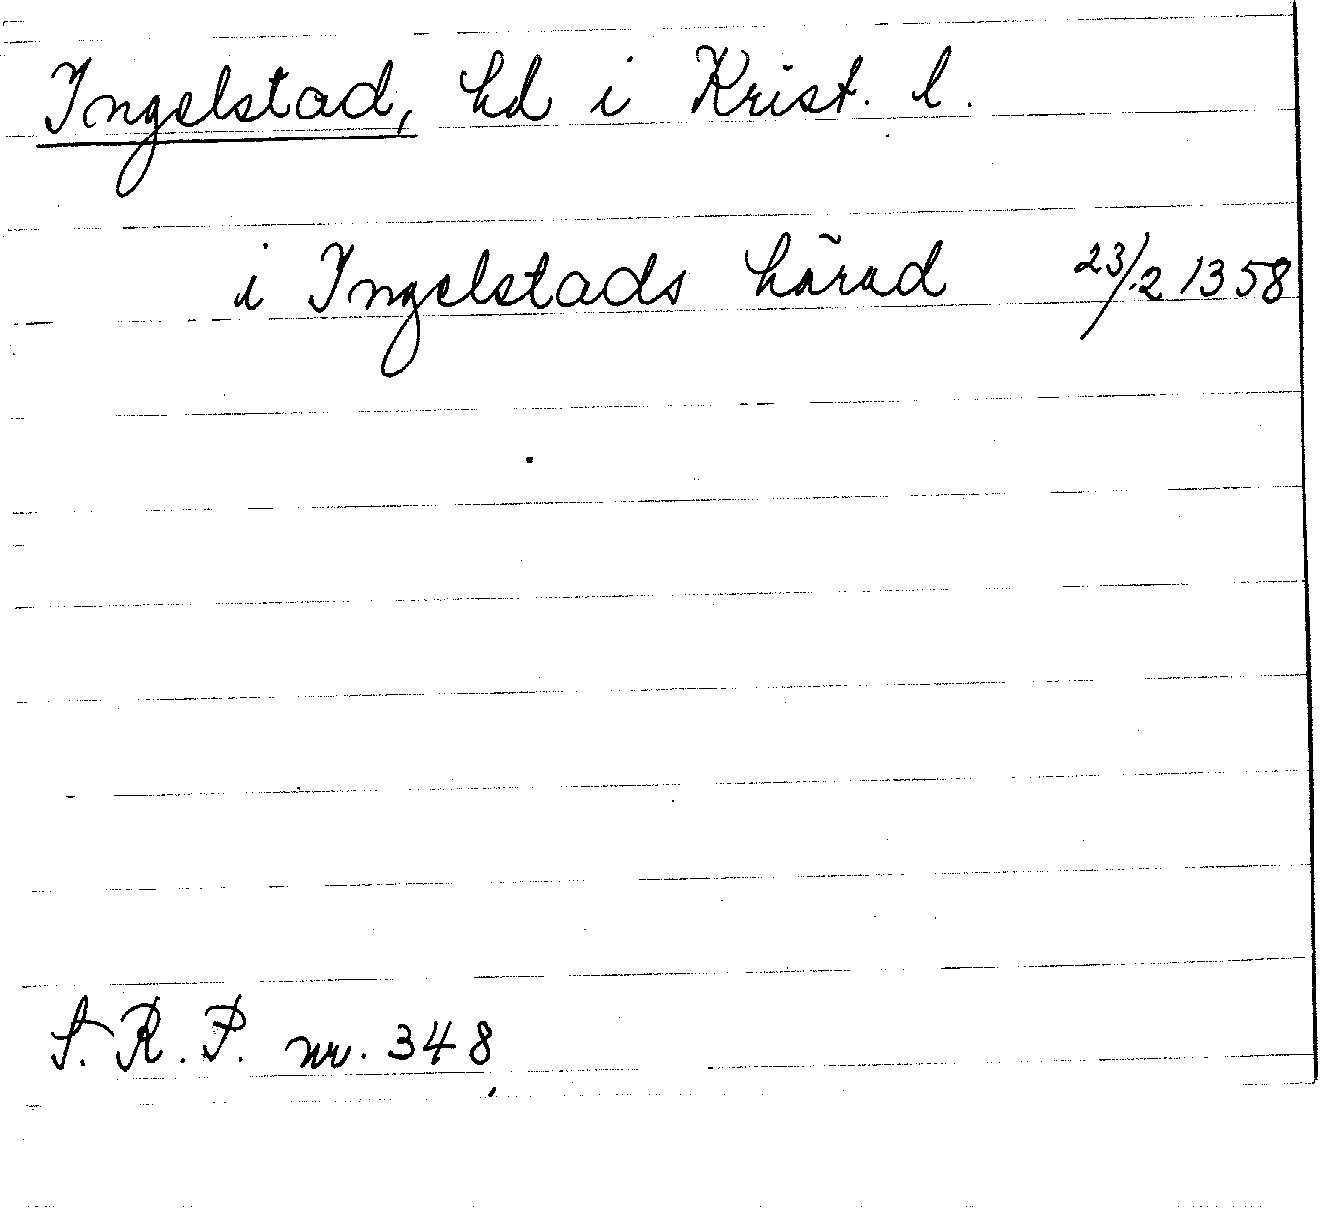 Ingelstad, hd i Krist. l.
i Ingelstads härad 23/2 1358
S. R. P. nr. 348